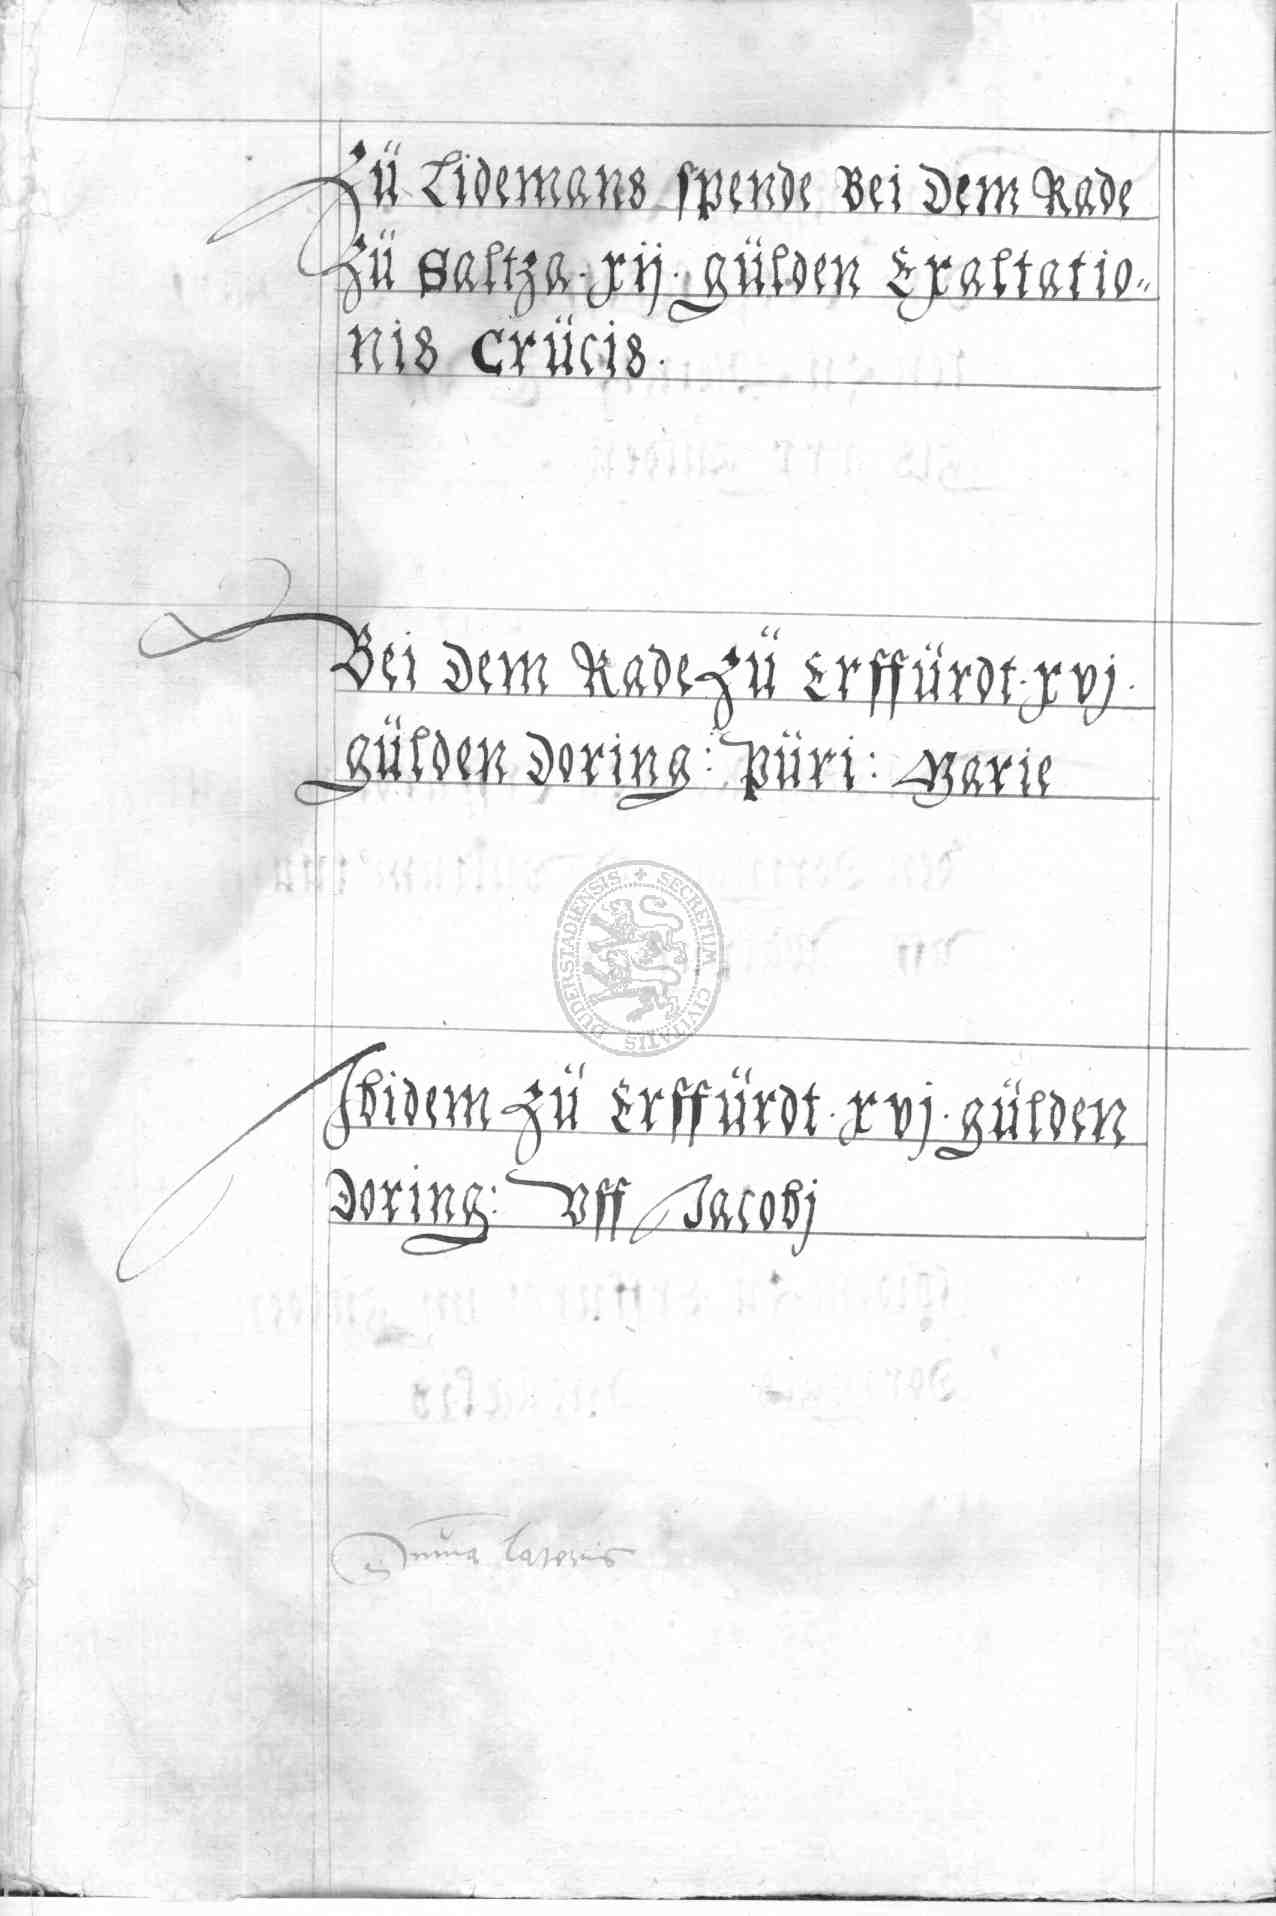 Zü Lidemans spende Bei Dem Rade
Zü Saltza · xij · gülden Exaltatio-
nis Crücis ·
Bei Dem Rade Zü Erffürdt · xvj ·
gülden Doring : Püri : Marie
SECRETUM CIVITATIS DUDERSTADIENSIS
Ibidem Zü Erffürdt · xvj · gülden
Doring : Vff Jacobj
Suma lateris